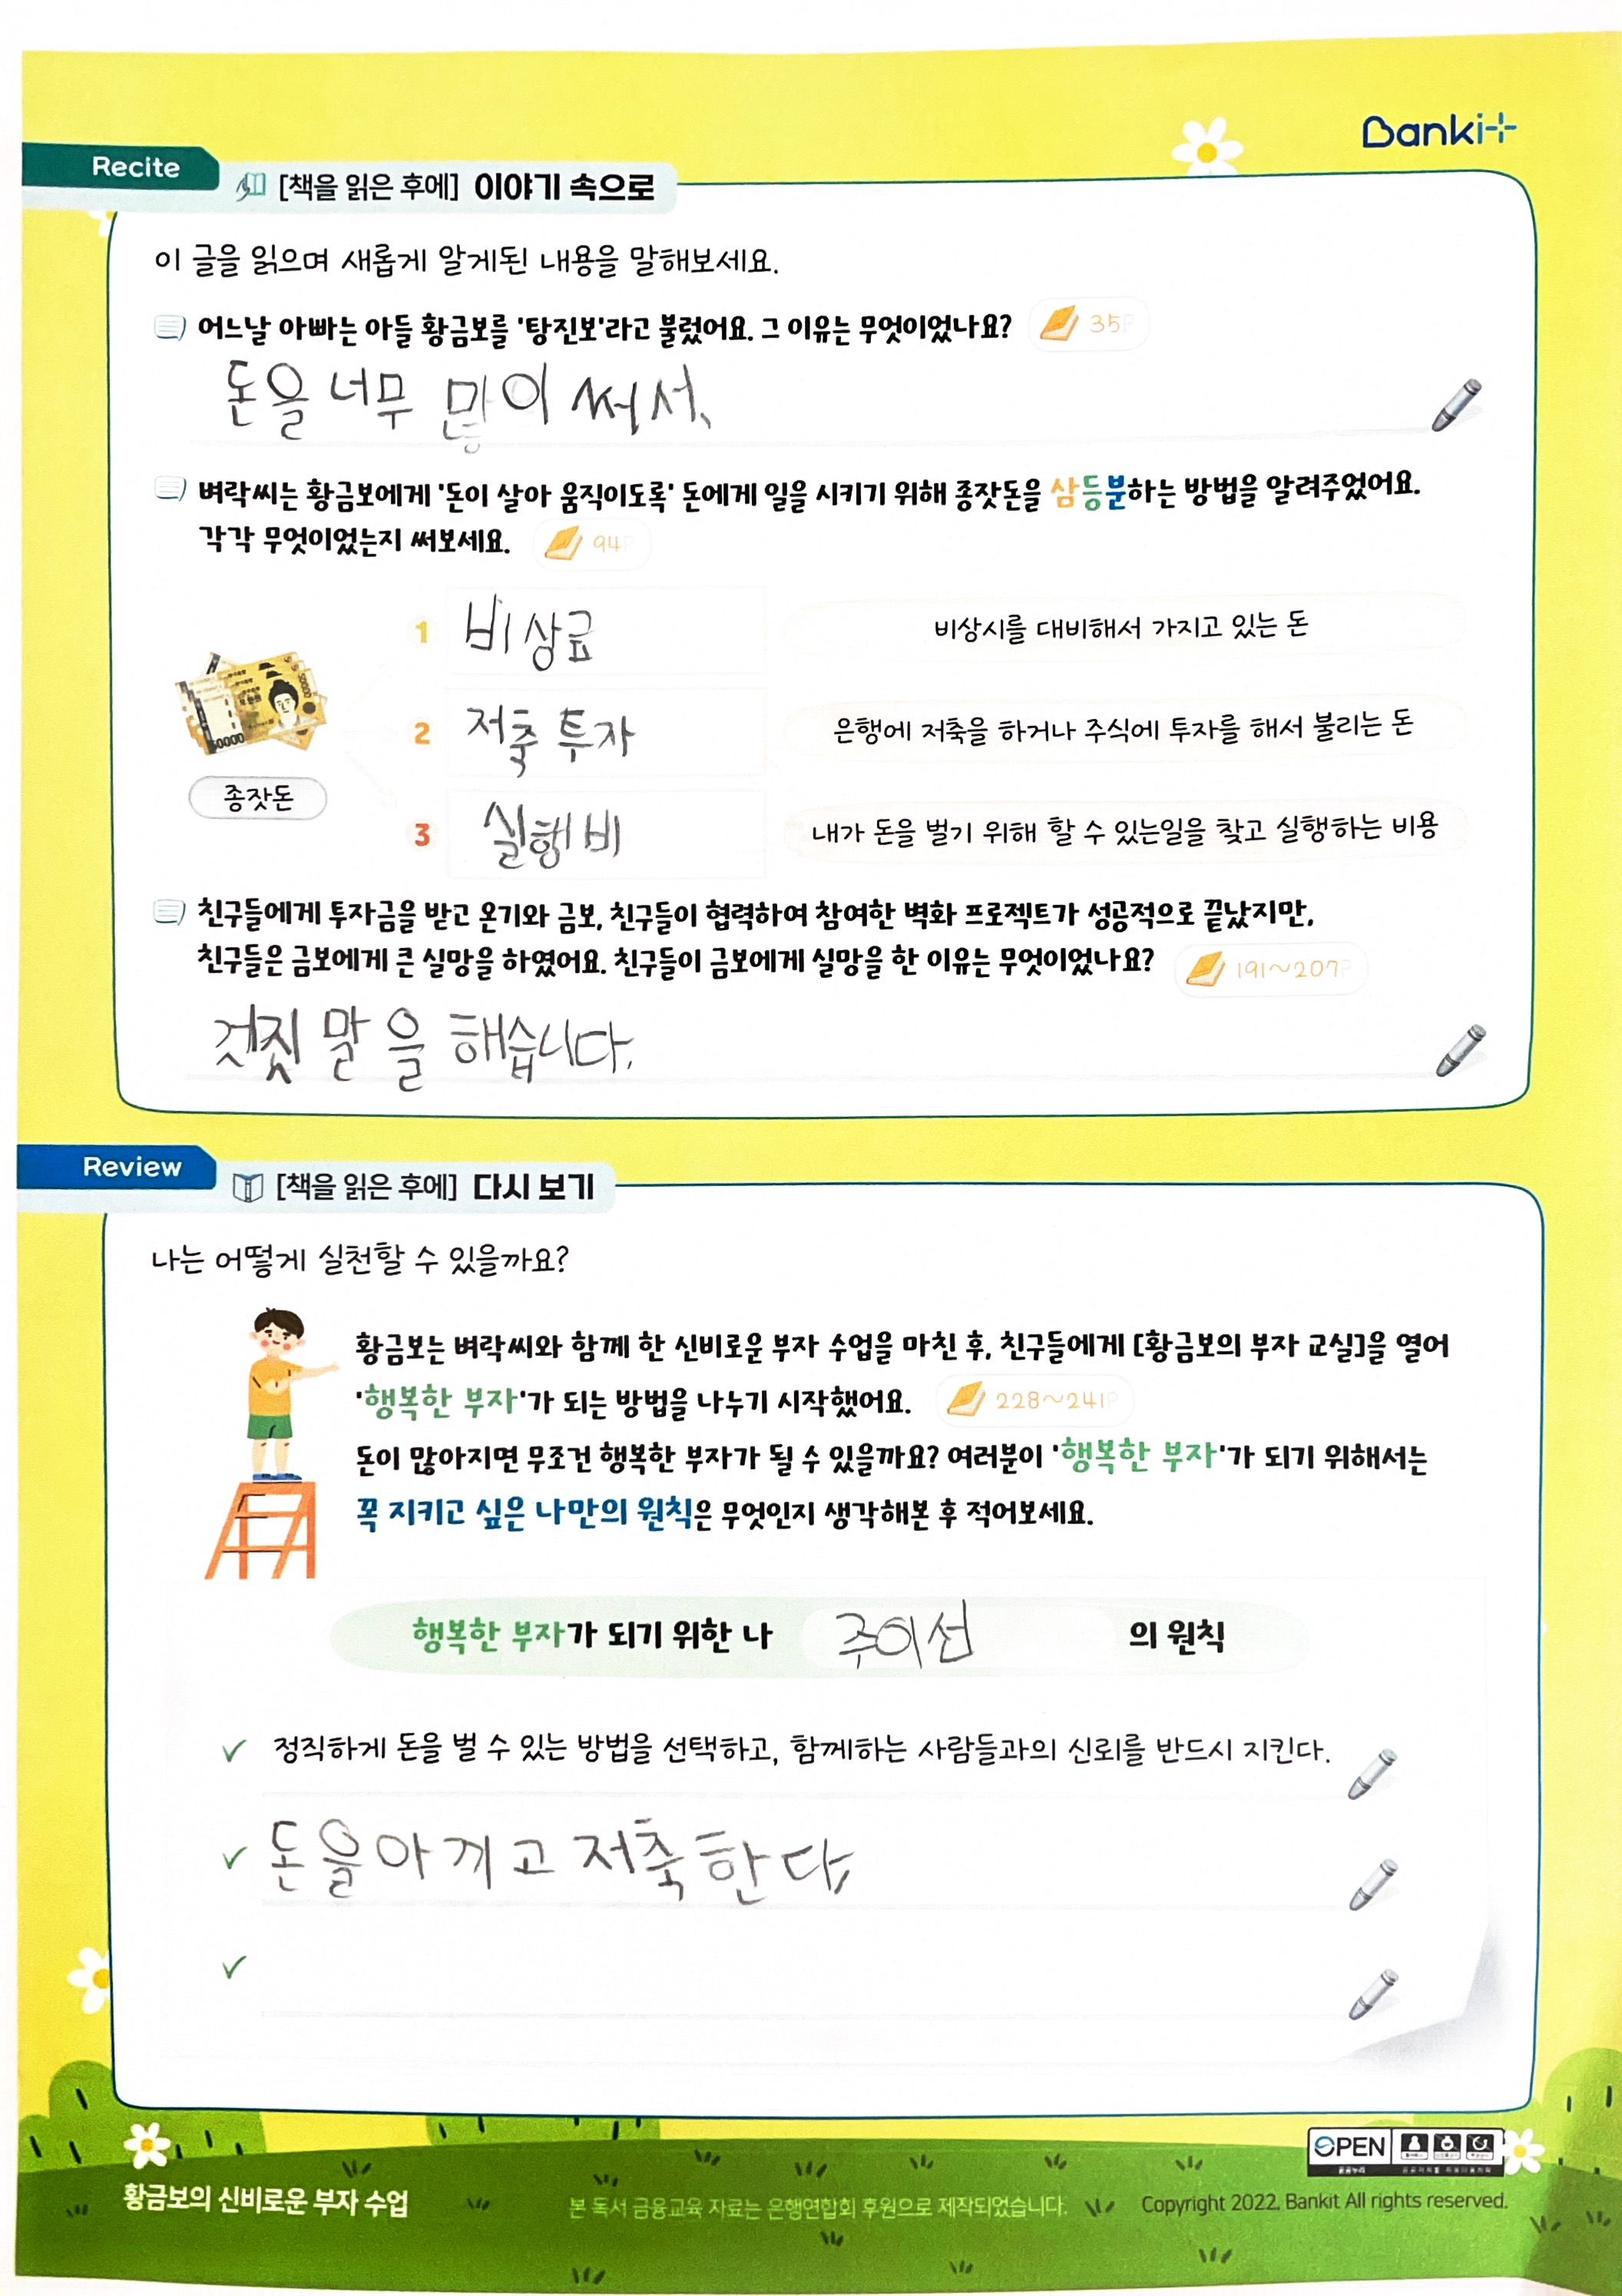 Bankit
Recite
[책을 읽은 후에] 이야기 속으로
이 글을 읽으며 새롭게 알게된 내용을 말해보세요.
어느날 아빠는 아들 황금보를 '탕진보'라고 불렀어요. 그 이유는 무엇이었나요? 35P
돈을 너무 많이 써서.
벼락씨는 황금보에게 '돈이 살아 움직이도록' 돈에게 일을 시키기 위해 종잣돈을 삼등분하는 방법을 알려주었어요.
각각 무엇이었는지 써보세요. 94P
1 비상금 비상시를 대비해서 가지고 있는 돈
2 저축 투자 은행에 저축을 하거나 주식에 투자를 해서 불리는 돈
종잣돈
3 실행비 내가 돈을 벌기 위해 할 수 있는일을 찾고 실행하는 비용
친구들에게 투자금을 받고 온기와 금보, 친구들이 협력하여 참여한 벽화 프로젝트가 성공적으로 끝났지만,
친구들은 금보에게 큰 실망을 하였어요. 친구들이 금보에게 실망을 한 이유는 무엇이었나요? 191~207P
것짓말을 해습니다.
Review
[책을 읽은 후에] 다시 보기
나는 어떻게 실천할 수 있을까요?
황금보는 벼락씨와 함께 한 신비로운 부자 수업을 마친 후, 친구들에게 [황금보의 부자 교실]을 열어
'행복한 부자'가 되는 방법을 나누기 시작했어요. 228~241P
돈이 많아지면 무조건 행복한 부자가 될 수 있을까요? 여러분이 '행복한 부자'가 되기 위해서는
꼭 지키고 싶은 나만의 원칙은 무엇인지 생각해본 후 적어보세요.
행복한 부자가 되기 위한 나 주이선 의 원칙
정직하게 돈을 벌 수 있는 방법을 선택하고, 함께하는 사람들과의 신뢰를 반드시 지킨다.
돈을 아끼고 저축한다.
OPEN
황금보의 신비로운 부자 수업
본 독서 금융교육 자료는 은행연합회 후원으로 제작되었습니다.
Copyright 2022. Bankit All rights reserved.